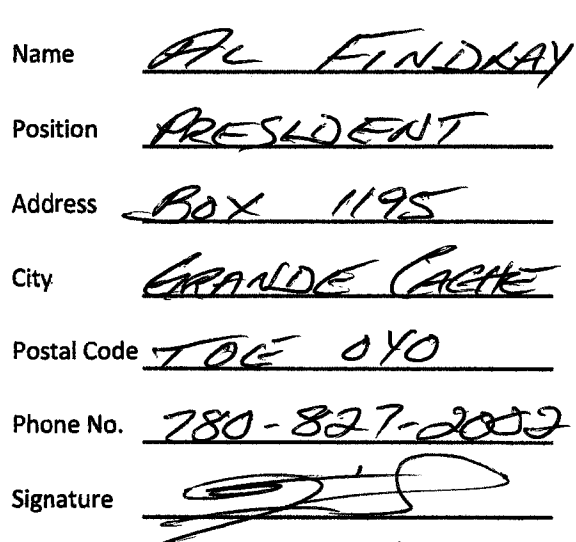 Name AL FINDLAY
Position PRESIDENT
Address BOX 1195
City GRANDE CACHE
Postal Code TOE 0Y0
Phone No. 780-827-2002
Signature